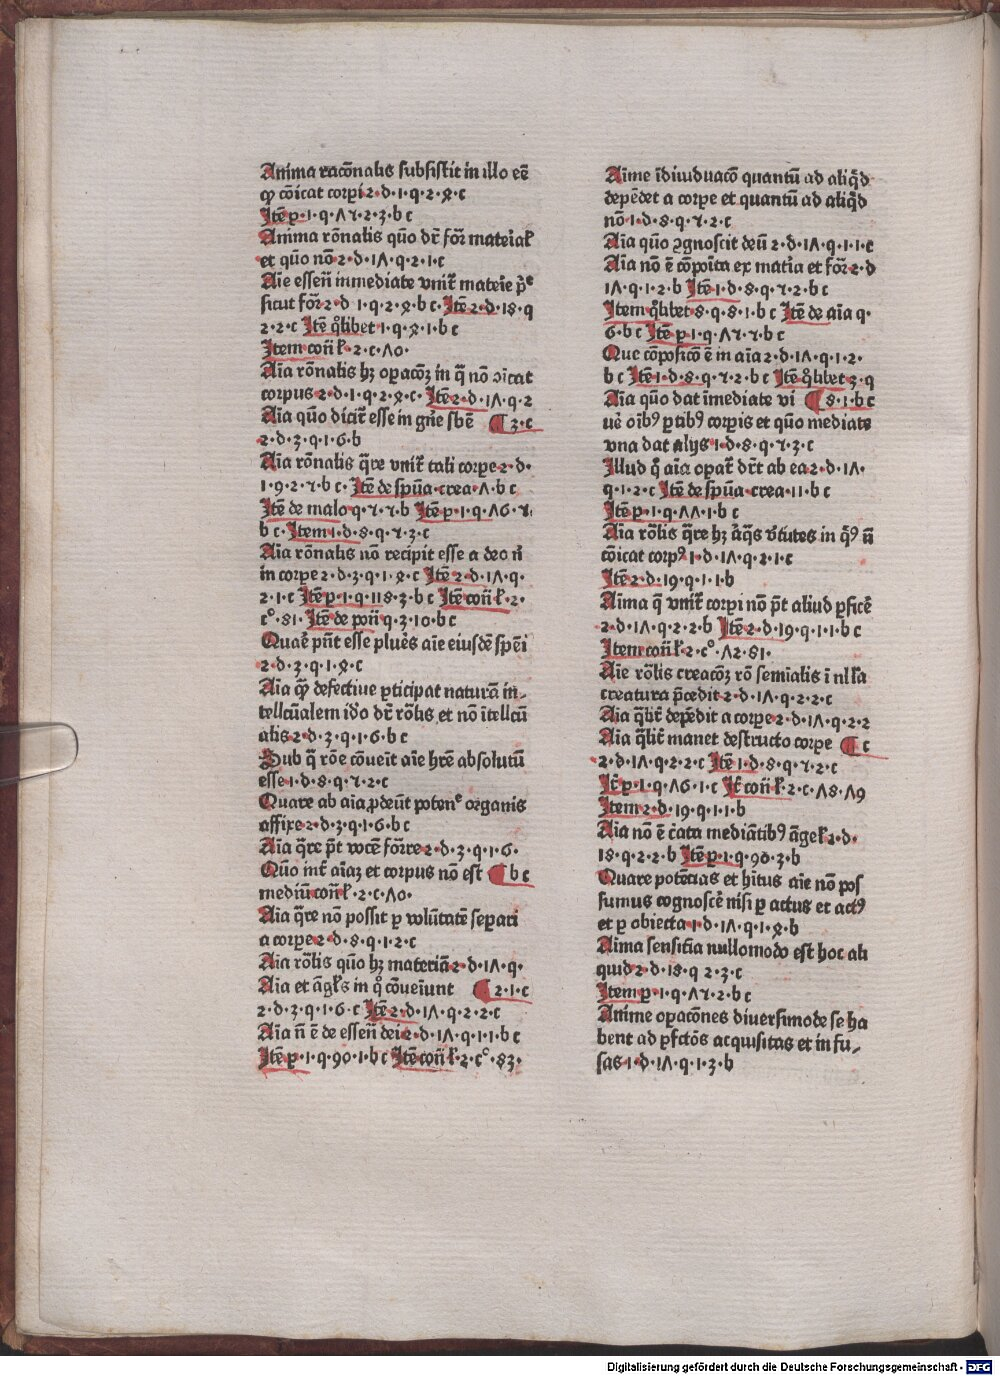 Anima racōnalis subsistit in illo eē
qȝ cōicat corpi 2·d·1·q·2·ꝝ·c
Itē p·1·q·Λ7·2·3·b c
Anima rōnalis quō dr̄ for̄ materīal
et quō nō 2·d·1Λ·q·2·1·c
Aīe essen̄ inmediate vnit̄ materīe p̄
sicut for̄ 2·d 1·q·2·ꝝ·b c· Itē 2·d·18·q
2·2·c Itē q̄libet 1·q·ꝝ·1·b c
Item con̄ ḡ·2·c·Λ0·
Aīa rōnalis hȝ opacōȝ in q̄ nō ɔ̄icat
corpus 2·d·1·q·2·ꝝ·c Itē 2·d·1Λ·q·2
Aīa quō dicit̄ esse in gn̄e sbē ¶ 3·c
2·d·3·q·1·6·b
Aīa rōnalis q̄re vnit̄ tali corpe 2·d·
1·9·2·7·b c· Itē de spūa crea·Λ·b c
Itē de malo q·7·7·b Itē p·1·q·Λ6·7·
b c· Item 1·d·8·q·7·3·c
Aīa rōnalis nō recipit esse a deo n̄
in corpe 2·d·3·q·1·ꝝ·c Itē 2·d·1Λ·q·
2·1·c Itē p·1·q·118·3·b c Itē con̄ ḡ·2·
c°·81· Itē de pon̄ q·3·10·b c
Quar̄ pn̄t esse plures aīe eiusdē spēi
2·d·3·q·1·ꝝ·c
Aīa qȝ defective pticipat naturā in-
tellcūalem ido dr̄ rōlis et nō ītellcū
alis 2·d·3·q·1·6·b c
Sub q̄ rōe cōveīt aīe hr̄e absolutū
esse 1·d·8·q·7·2·c
Quare ab aīa pdeūt poten̄ organis
affixe 2·d·3·q·1·6·b c
Aīa q̄re pt̄ vocē for̄re 2·d·3·q·1·6·
Quō int̄ aīaȝ et corpus nō est ¶ b c
mediū con̄ ḡ·2·c·Λ0·
Aīa q̄re nō possit p volūtatē separi
a corpe 2·d·8·q·1·2·c
Aīa rōlis quō hȝ materiā 2·d·1Λ·q·
Aīa et āgl̄s in q̊ cōveīunt ¶ 2·1·c
2·d·3·q·1·6·c Itē 2·d·1Λ·q·2·2·c
Aīa n̄ ē de essen̄ dei 2·d·1Λ·q·1·1·b c
Itē p·1·q·90·1·b c Itē con̄ ḡ·2·c°·83·
Aīme īdiuduacō quantū ad aliq̄d
depēdet a corpe et quantū ad aliq̄d
nō 1·d·8·q·7·2·c
Aīa quō ꝯgnoscit deū 2·d·1Λ·q·1·1·c
Aīa nō ē cōpoīta ex matīa et for̄ 2·d
1Λ·q·1·2·b Itē 1·d·8·q·7·2·b c
Item q̄libet 8·q·8·1·b c Itē de aīa q·
6·b c Itē p·1·q·Λ7·7·b c
Que cōposicō ē in aīa 2·d·1Λ·q·1·2·
b c Itē 1·d·8·q·7·2·b c Itē q̄libet 3·q
Aīa quō dat īmediate vi ¶ 8·1·b c
uē oībꝰ ptibꝰ corpis et quō mediate
vna dat alijs 1·d·8·q·7·3·c
Illud q̊ aīa opat̄ dr̄t ab ea 2·d·1Λ·
q·1·2·c Itē de spūa crea·11·b c
Itē p·1·q·ΛΛ·1·b c
Aīa rōlis q̄re hȝ āq̄s v̄tutes in q̄ꝰ n̄
cōicat corpꝰ 1·d·1Λ·q·2·1·c
Itē 2·d·19·q·1·1·b
Aīma q̄ vnit̄ corpi nō pt̄ aliud pficē
2·d·1Λ·q·2·2·b Itē 2·d·19·q·1·1·b c
Item con̄ ḡ·2·c°·Λ2·81·
Aīe rōlis creacōȝ rō semīalis ī nlla
creatura pcedit 2·d·1Λ·q·2·2·c
Aīa q̄lit̄ depēdit a corpe 2·d·1Λ·q·2·2
Aīa q̄lit̄ manet destructo corpe ¶ c
2·d·1Λ·q·2·2·c Itē 1·d·8·q·7·2·c
It̄ p·1·q·Λ6·1·c It̄ con̄ ḡ·2·c·Λ8·Λ9
Item 2·d·19·q·1·1·b
Aīa nō ē c̄ata mediātibꝰ āgel̄ 2·d·
18·q·2·2·b Itē p·1·q·90·3·b
Quare potētias et hītus aīe nō pos
sumus cognoscē nisi p actus et actꝰ
et p obiecta 1·d·1Λ·q·1·ꝝ·b
Aīma sensitīa nullomodo est hoc ali
quid 2·d·18·q 2·3·c
Item p·1·q·Λ7·2·b c
Anime opacōnes diversimode se ha
bent ad pfctōs acquisitas et infu-
sas 1·d·1Λ·q·1·3·b
Digitalisierung gefördert durch die Deutsche Forschungsgemeinschaft - DFG